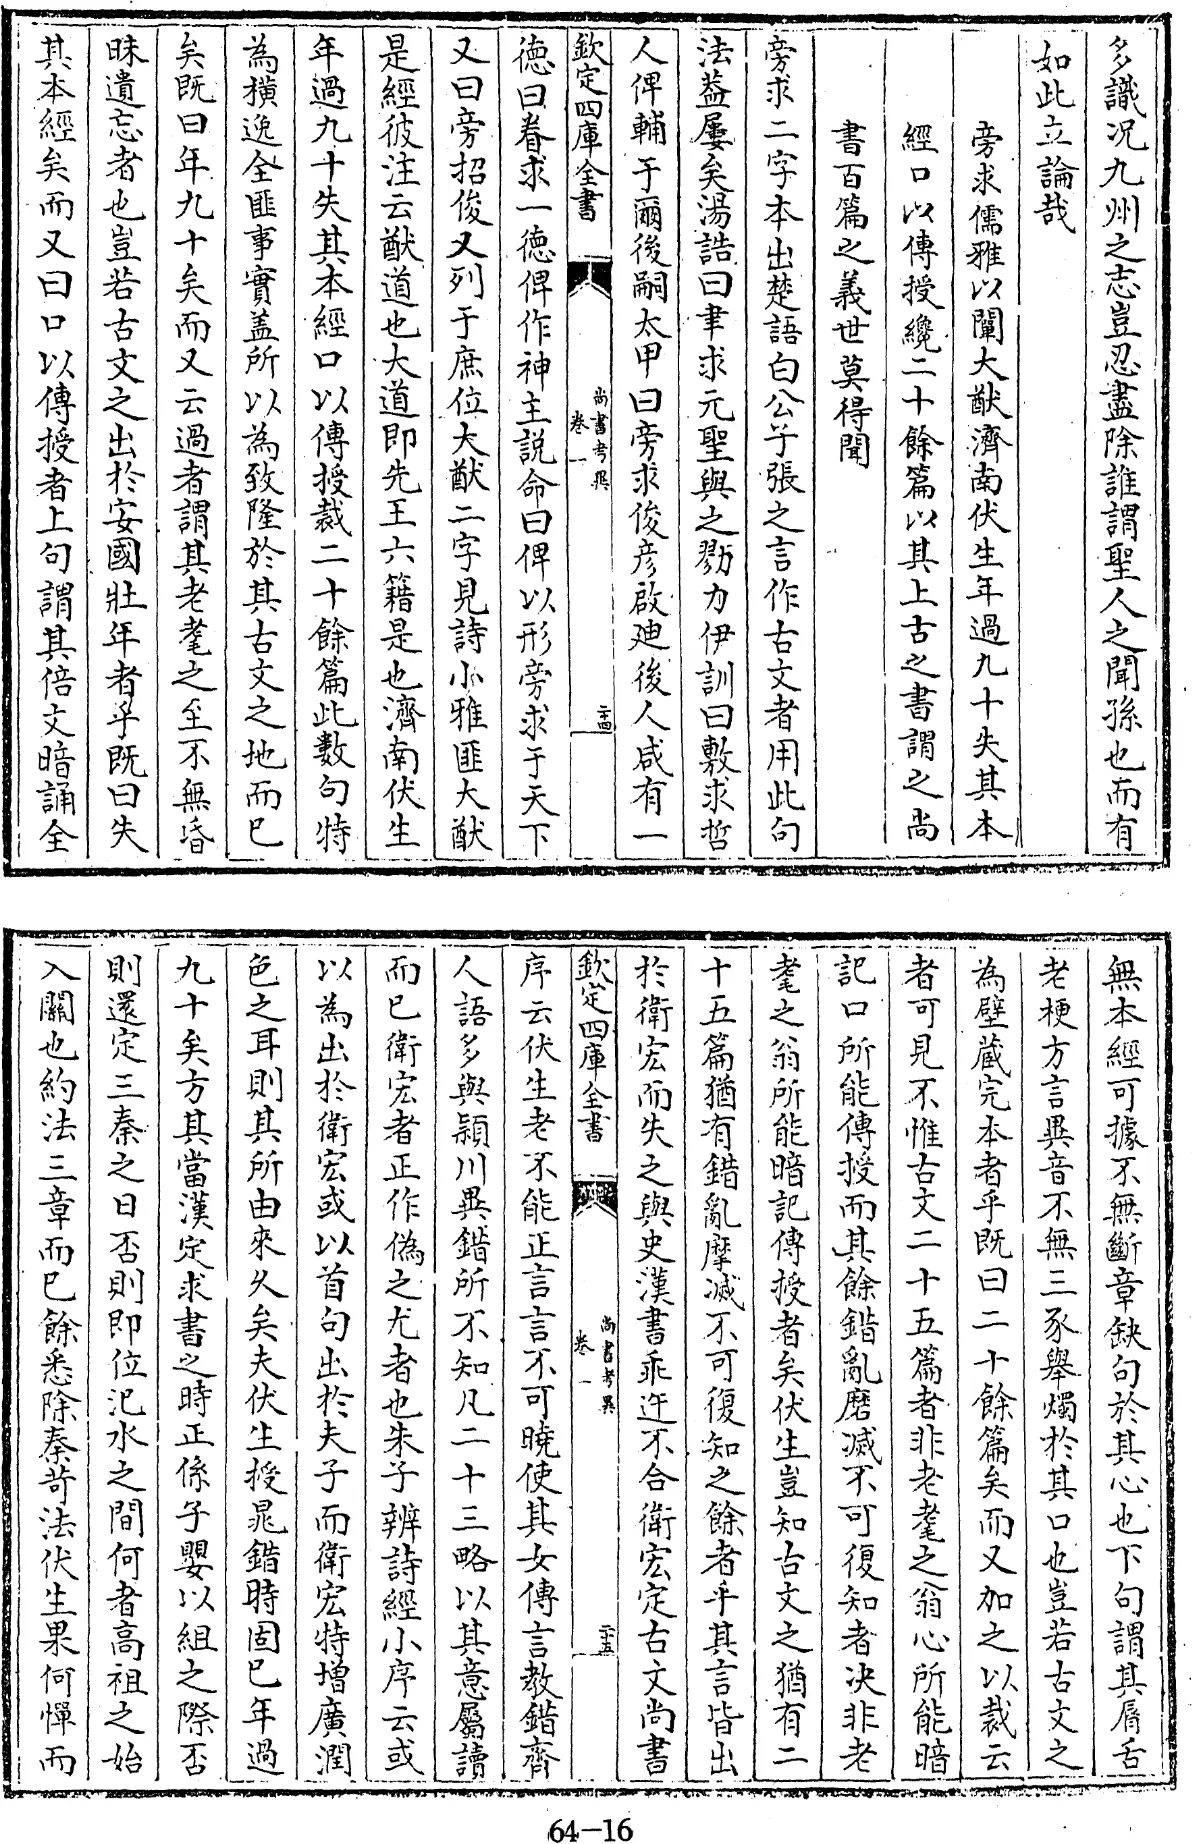 多識况九州之志豈忍盡除誰謂聖人之聞孫也而有
如此立論哉
旁求儒雅以闡大猷濟南伏生年過九十失其本
經口以傳授纔二十餘篇以其上古之書謂之尚
書百篇之義世莫得聞
旁求二字本出楚語白公子張之言作古文者用此句
法葢屢矣湯誥曰聿求元聖與之戮力伊訓曰敷求哲
人俾輔于爾後嗣太甲曰旁求俊彦啟廸後人咸有一
欽定四庫全書
尚書考異
卷一
二十四
德曰眷求一德俾作神主說命曰俾以形旁求于天下
又曰旁招俊乂列于庶位大猷二字見詩小雅匪大猷
是經彼注云猷道也大道即先王六籍是也濟南伏生
年過九十失其本經口以傳授裁二十餘篇此數句特
為横逸全匪事實盖所以為致隆於其古文之地而已
矣既曰年九十矣而又云過者謂其老耄之至不無昏
眛遺忘者也豈若古文之出於安國壯年者乎既曰失
其本經矣而又曰口以傳授者上句謂其倍文暗誦全
無本經可據不無斷章缺句於其心也下句謂其脣舌
老梗方言異音不無三豕舉燭於其口也豈若古文之
為壁藏完本者乎既曰二十餘篇矣而又加之以裁云
者可見不惟古文二十五篇者非老耄之翁心所能暗
記口所能傳授而其餘錯亂磨滅不可復知者决非老
耄之翁所能暗記傳授者矣伏生豈知古文之猶有二
十五篇猶有錯亂摩滅不可復知之餘者乎其言皆出
於衛宏而失之與史漢書乖迕不合衛宏定古文尚書
欽定四庫全書
尚書考異
卷一
二十五
序云伏生老不能正言言不可曉使其女傳言教錯齊
人語多與頴川異錯所不知凡二十三略以其意屬讀
而已衛宏者正作偽之尤者也朱子辨詩經小序云或
以為出於衛宏或以首句出於夫子而衛宏特增廣潤
色之耳則其所由來久矣夫伏生授晁錯時固已年過
九十矣方其當漢定求書之時正係子嬰以組之際否
則還定三秦之日否則即位汜水之間何者高祖之始
入關也約法三章而已餘悉除秦苛法伏生果何憚而
64-16